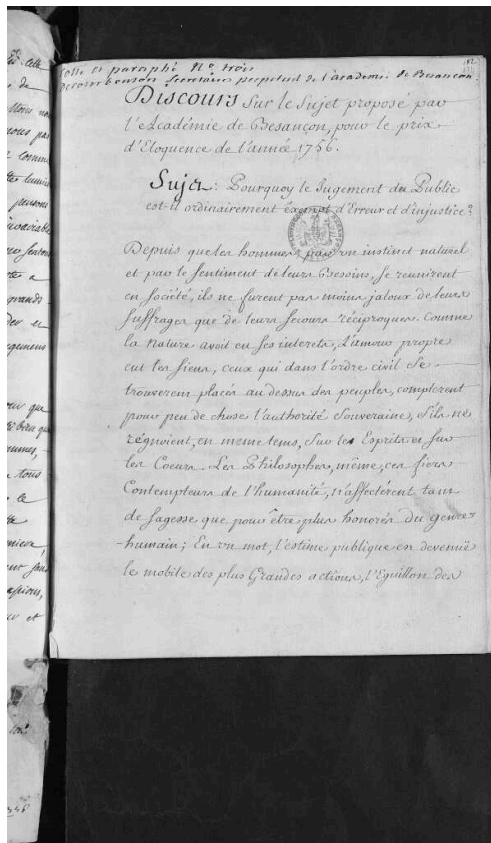 Cotté et paraphé No trois
secretaire perpetuel de l'academie de Besançon
Discours Sur le Sujet proposé par
l'Académie de Besançon, pour le prix
d'Eloquence de l'année 1756.
Sujet: Pourquoy le Jugement du Public
est-il ordinairement éxempt d'Erreur et d'injustice?
Depuis que les hommes, par un instinct naturel
et par le sentiment de leurs Besoins, se reünirent
en société, ils ne furent pas moins jaloux de leurs
suffrages que de leurs secours réciproques. Comme
la Nature avoit eu ses interets, L'amour propre
eut les siens, ceux qui dans l'ordre civil se
trouverent placés au dessus des peuples, compterent
pour peu de chose l'authorité Souveraine, s'ils ne
régnoient, en meme tems, sur les Esprits et sur
les Coeurs. Les Philosophes, même, ces fiers
Contempteurs de l'humanité, n'affectérent tant
de sagesse que pour être plus honorés du genre-
-humain; En un mot, l'estime publique est devenuë
le mobile des plus Grandes actions, l'Eguillon des